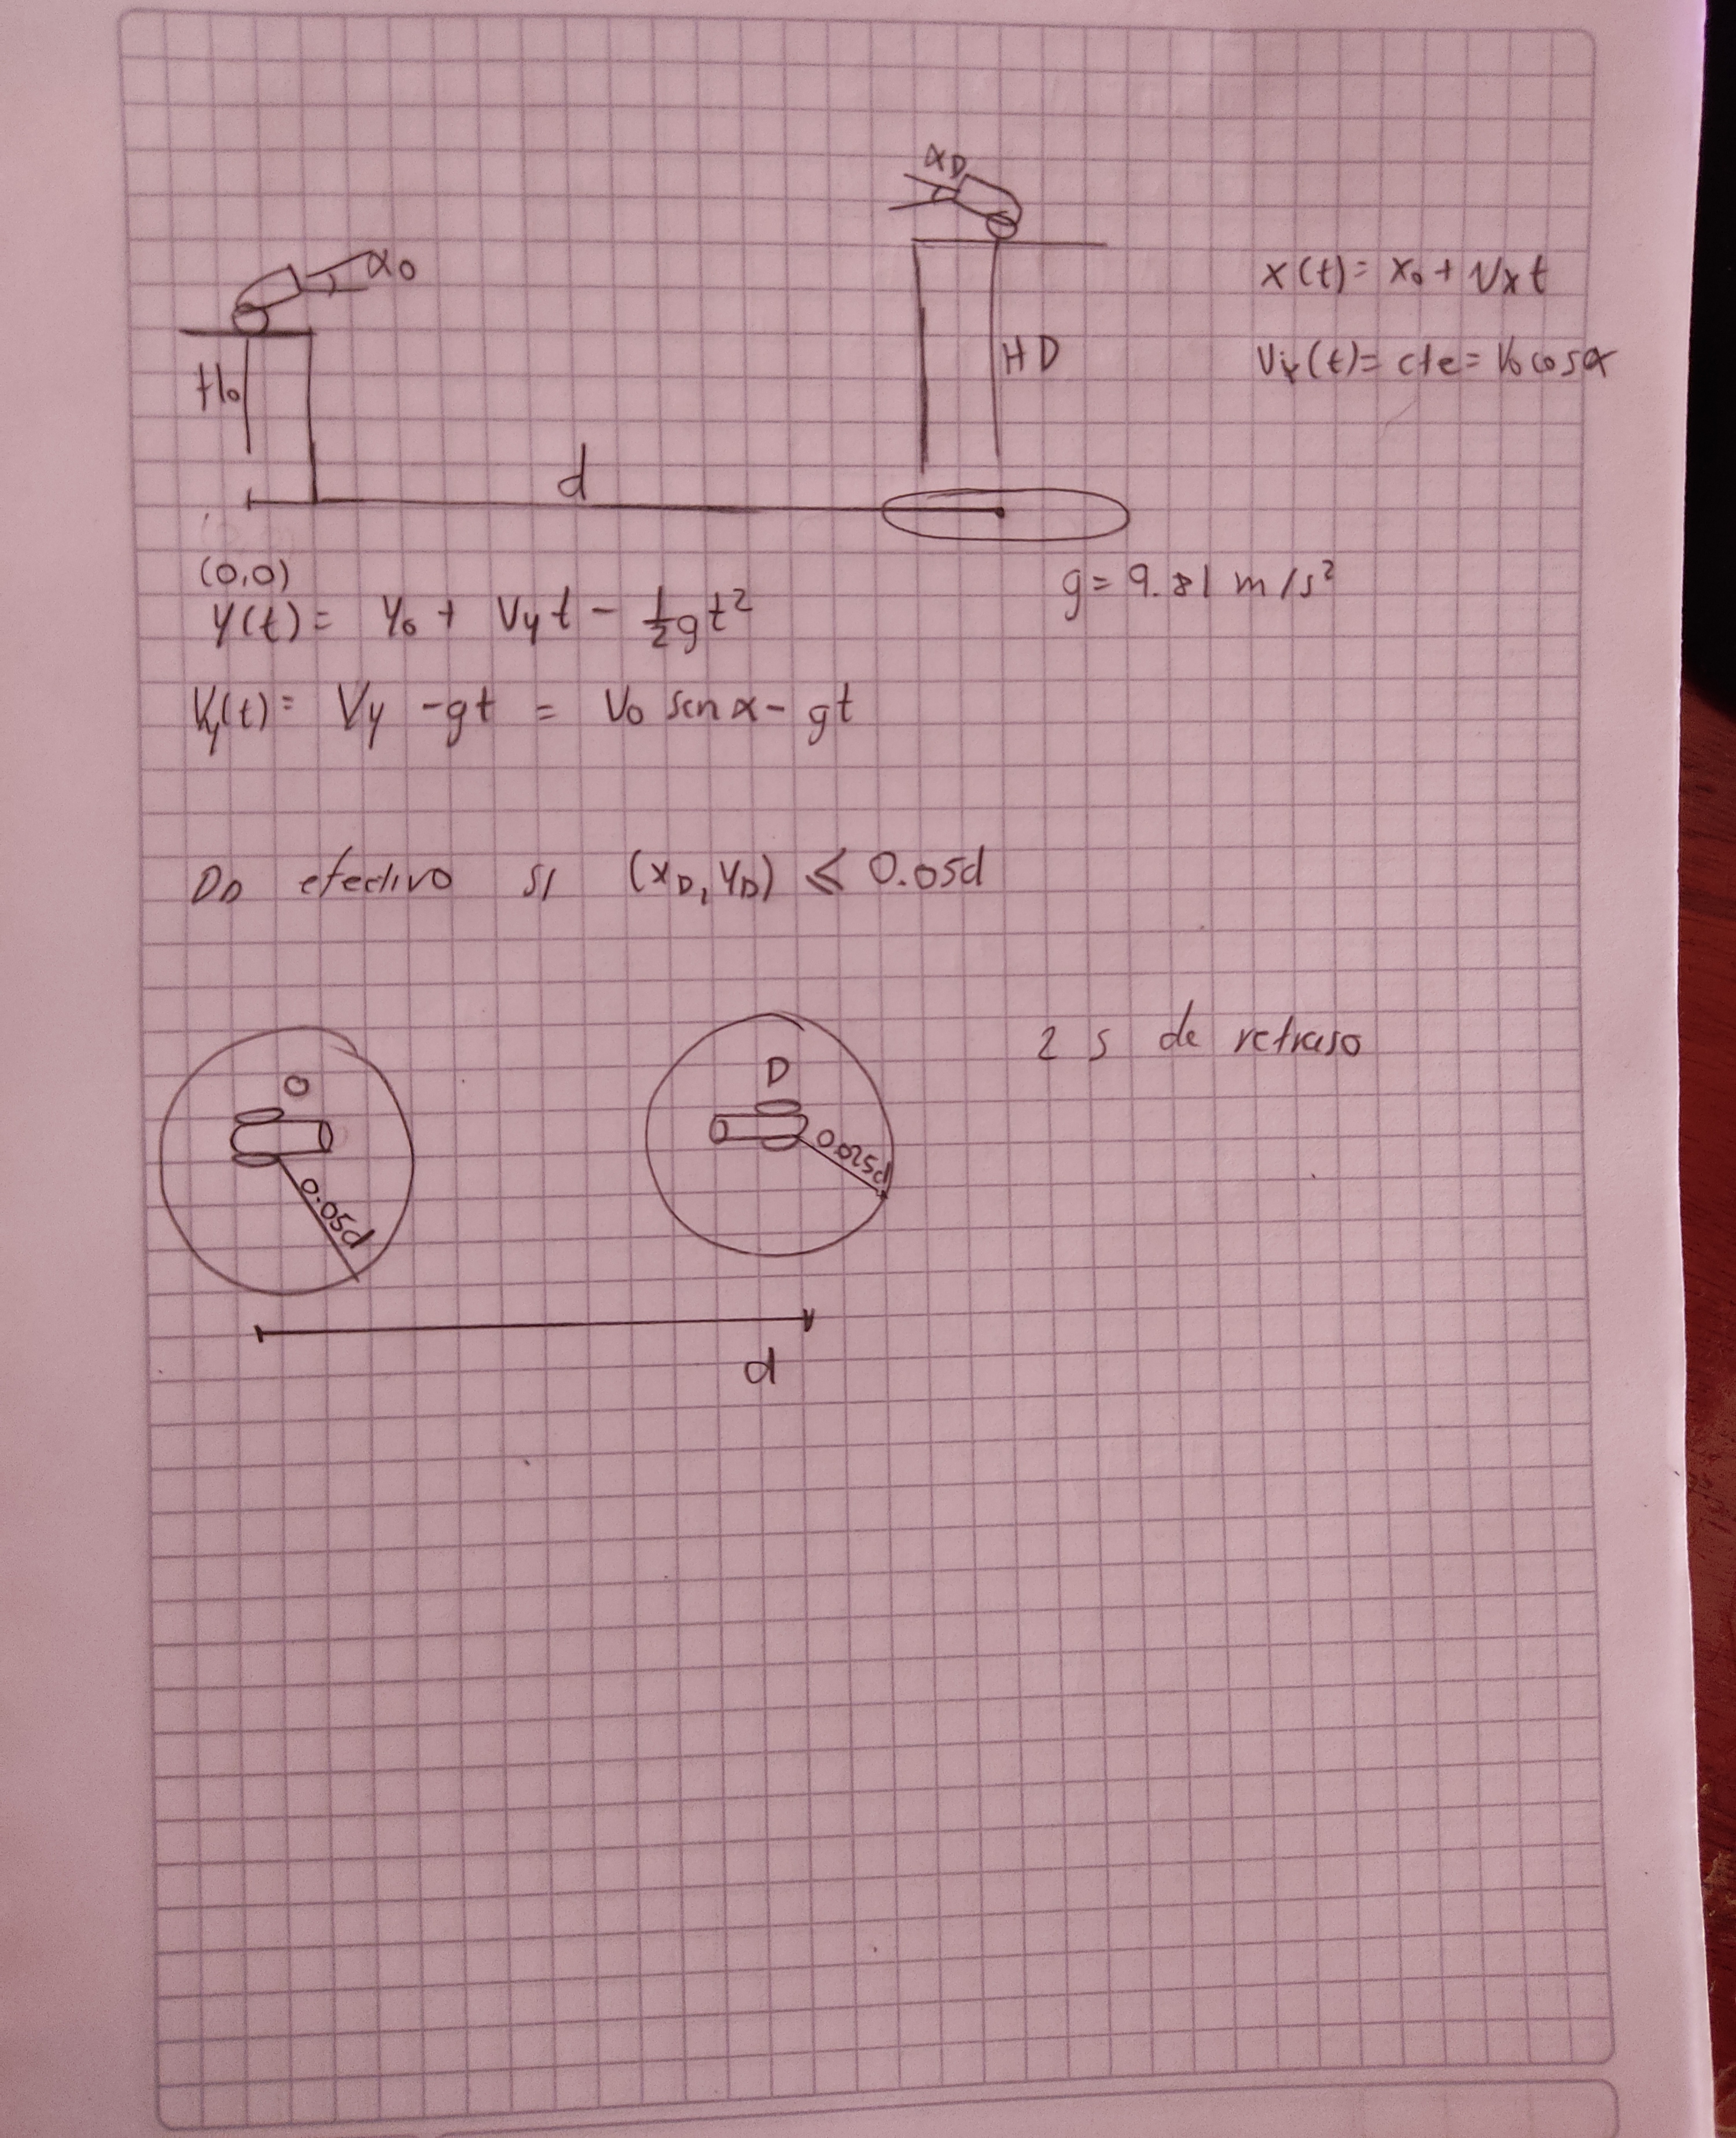 αD
αo
x(t)= xo + Vxt
Ho
HD
Vx(t)= cte= Vo cosα
d
(0,0)
g= 9.81 m/s²
Y(t)= Yo + Vyt - ½gt²
Vy(t)= Vy -gt = Vo senα - gt
DD efectivo si (xD, YD) ≤ 0.05d
2 s de retraso
O
D
0.05d
0.025d
d